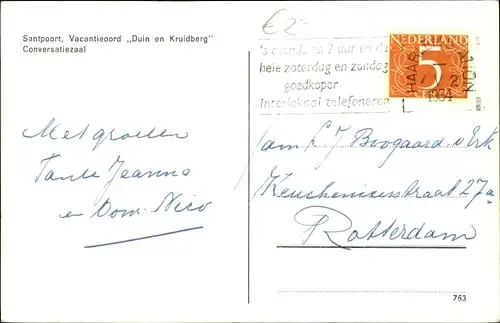 Santpoort, Vacantieoord „Duin en Kruidberg"
Conversatiezaal
€2-
's avonds na 7 uur en de
hele zaterdag en zondag
goedkoper
interlokaal telefoneren
HAAR
1964
NEDERLAND
5
Met groeten
Tante Jeanne
en Oom Nico
fam L J Boogaard v. Erk
Keucheniusstraat 27a
Rotterdam
763